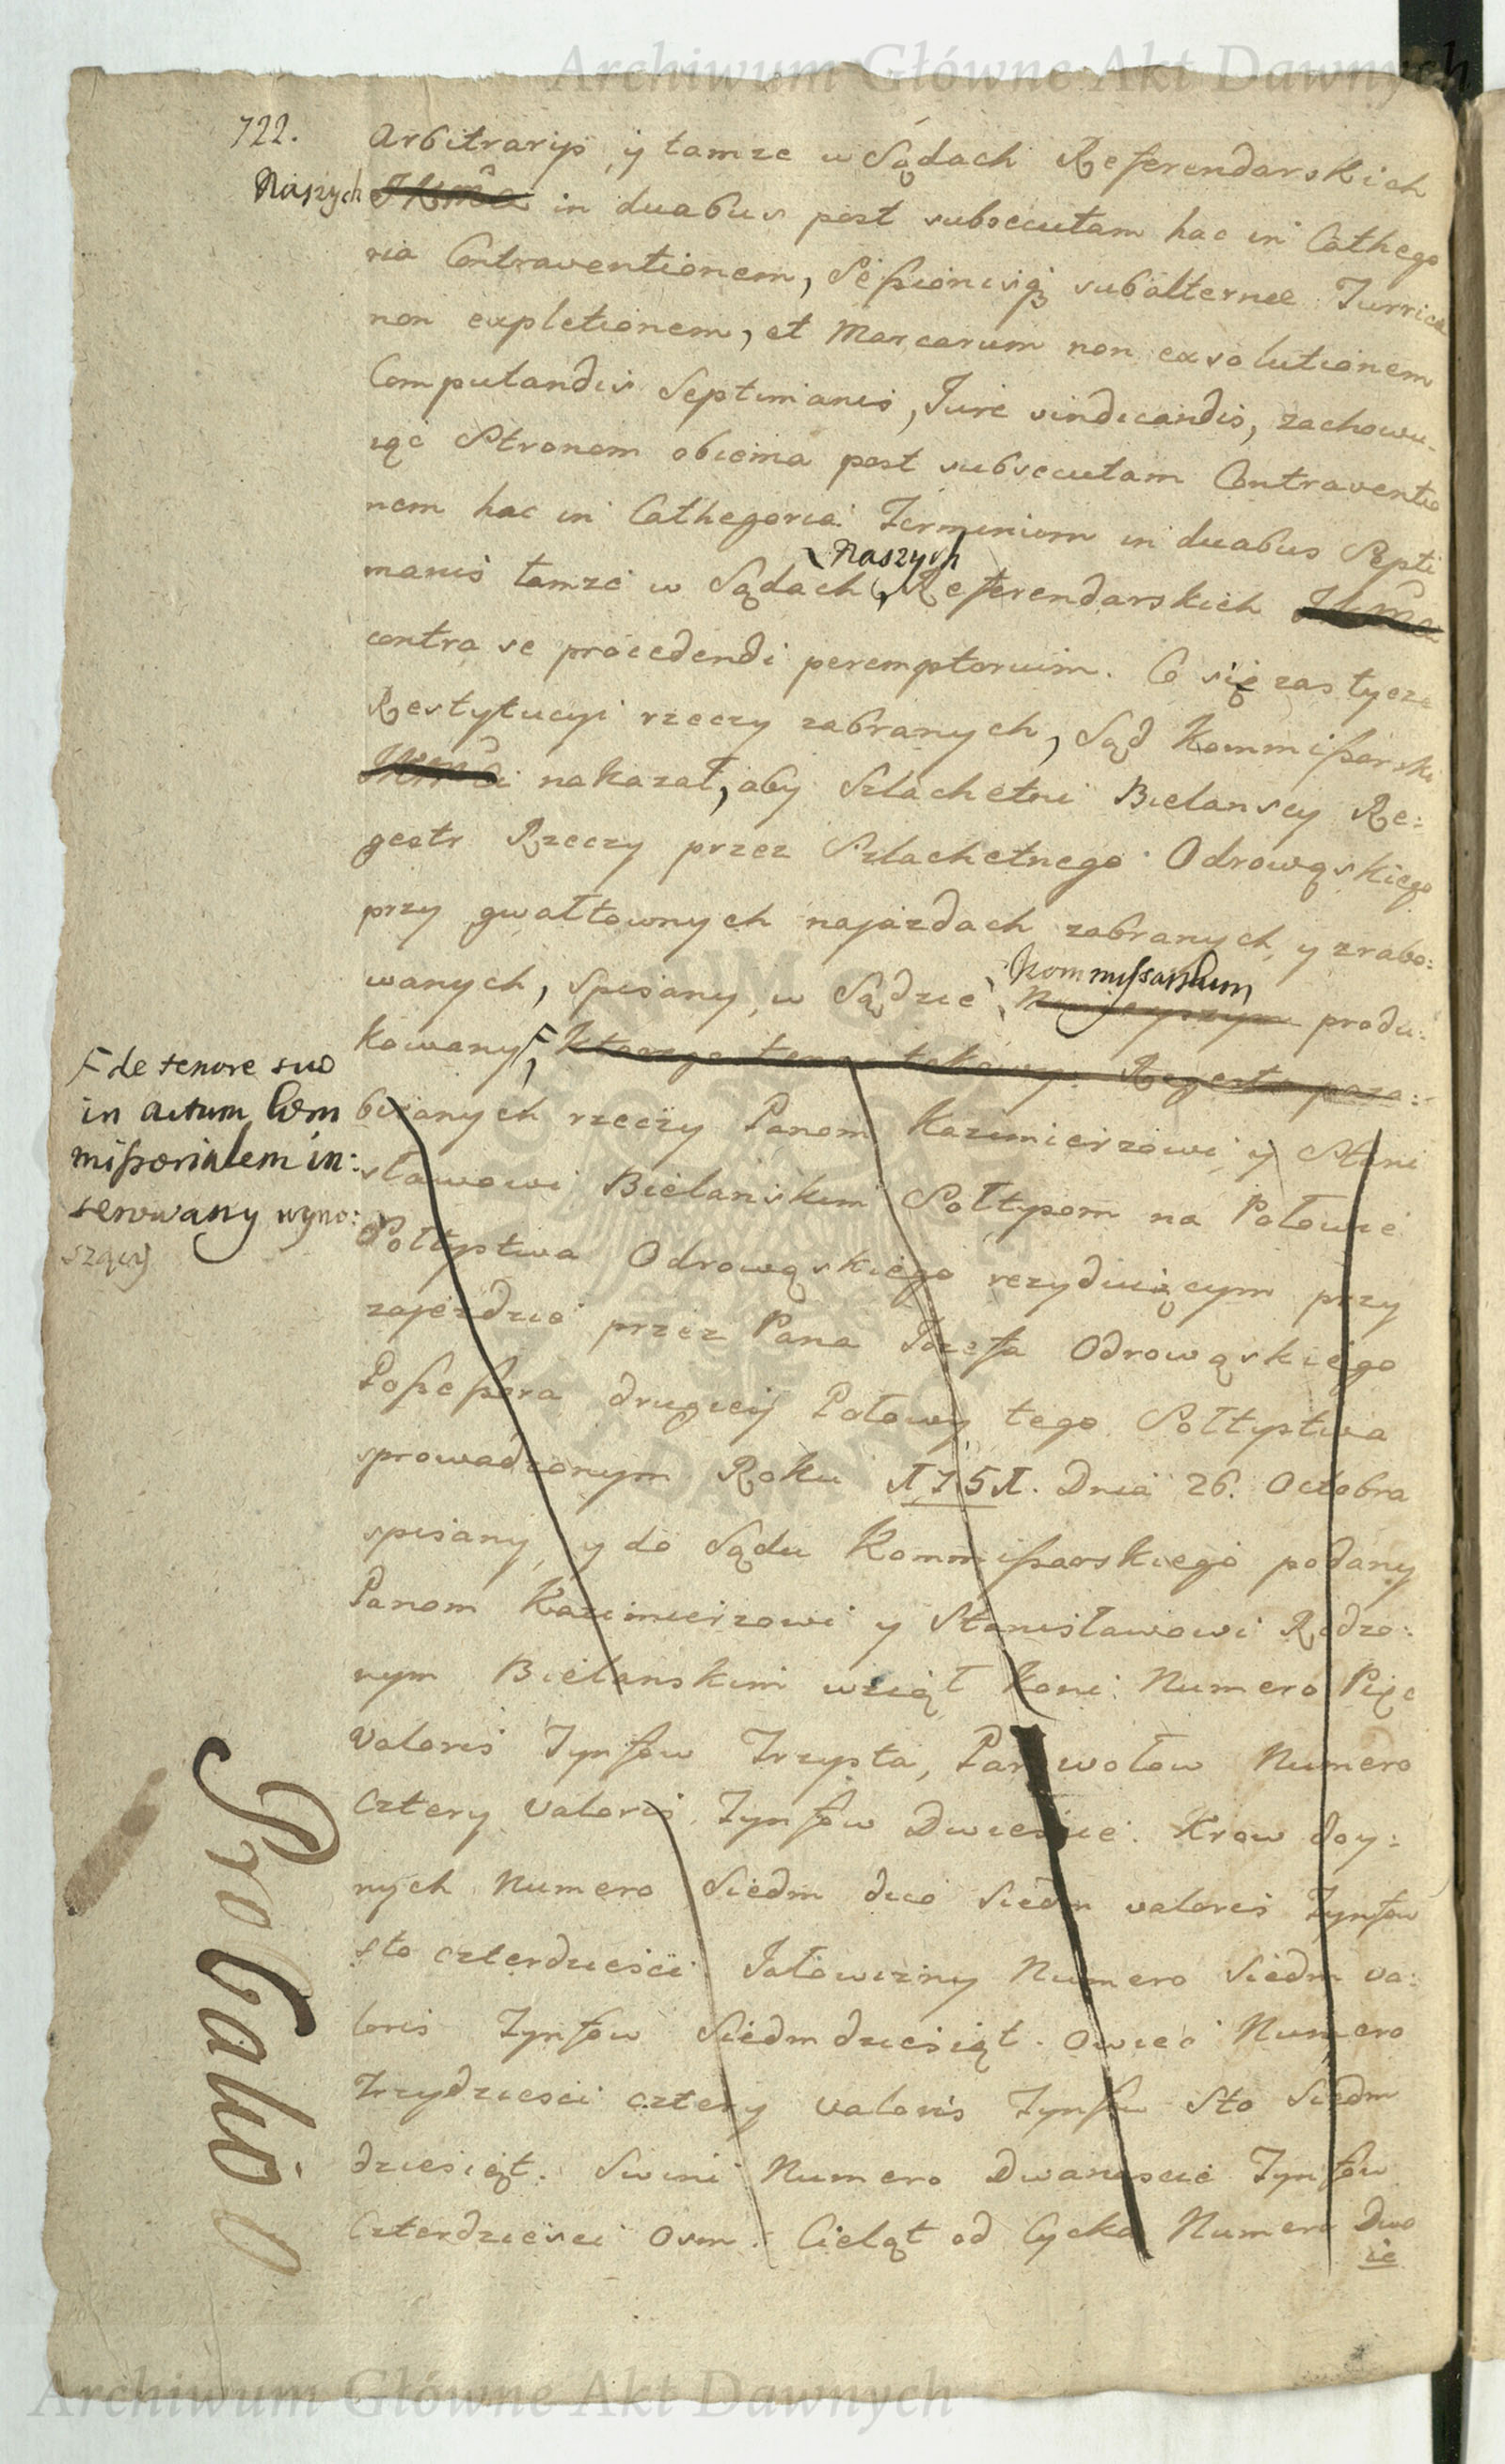 Archiwum Główne Akt Dawnych
722.
Arbitraryis y tamze w Sądach Referendarskich
Naszych JKmci in duabus post subsecutam hac in Cathego
ria Contraventionem, Sessionisq; subalternae Turrica
non expletionem, et Marcarum non exsolutionem
Computandis Septimanis, Jure vindicandis, zachowu-
iąc Stronom obiema post subsecutam Contraventio
nem hac in Cathegoria Terminum in duabus Septi
manis tamze w Sądach Naszych Referendarskich
contra se procedendi peremptorium. Co się zas tycze
Restytucyi rzeczy zabranych, Sąd Kommissarski
nakazał, aby Szlachetni Bielanscy Re:
gestr Rzeczy przez Szlachetnego Odrowąskiego
przy gwałtownych najazdach zabranych y zrabo:
wanych, spisany, w Sądzie Kommissarskim Ninieyszym produ:
kowany, F ktorego tenor takowy. Regestr poza:
F de tenore suo
in Actum Com
missorialem in:
serowany wyno:
szący
bieranych rzeczy Panom Kazimierzowi y Stani
sławowi Bielanskim Sołtysom na Połowie
Sołtystwa Odrowąskiego rezyduiącym przy
zajezdzie przez Pana Jozefa Odrowąskiego
Possessora drugiey Połowy tego Sołtystwa
sprowadzonym Roku 1751. Dnia 26. Octobra
spisany, y do Sądu Kommissarskiego podany
Panom Kazimierzowi y Stanisławowi Rodzo:
nym Bielanskim wziął Koni Numero Pięc
Valoris Tynfow Trzysta, Par wołow Numero
Cztery Valoris Tynfow Dwiescie. Krow doy:
nych Numero Siedm duo Siedm valoris Tynfow
sto czterdziesci. Jałowizny Numero Siedm va:
loris Tynfow Siedmdziesiąt. Owiec Numero
Trzydziesci cztery valoris Tynfow Sto Siedm
dziesiąt. Swini Numero Dwanascie Tynfow
Czterdziesci Osm. Cieląt od Cycka Numero Dwo
ie
Pro Calvo
Archiwum Główne Akt Dawnych